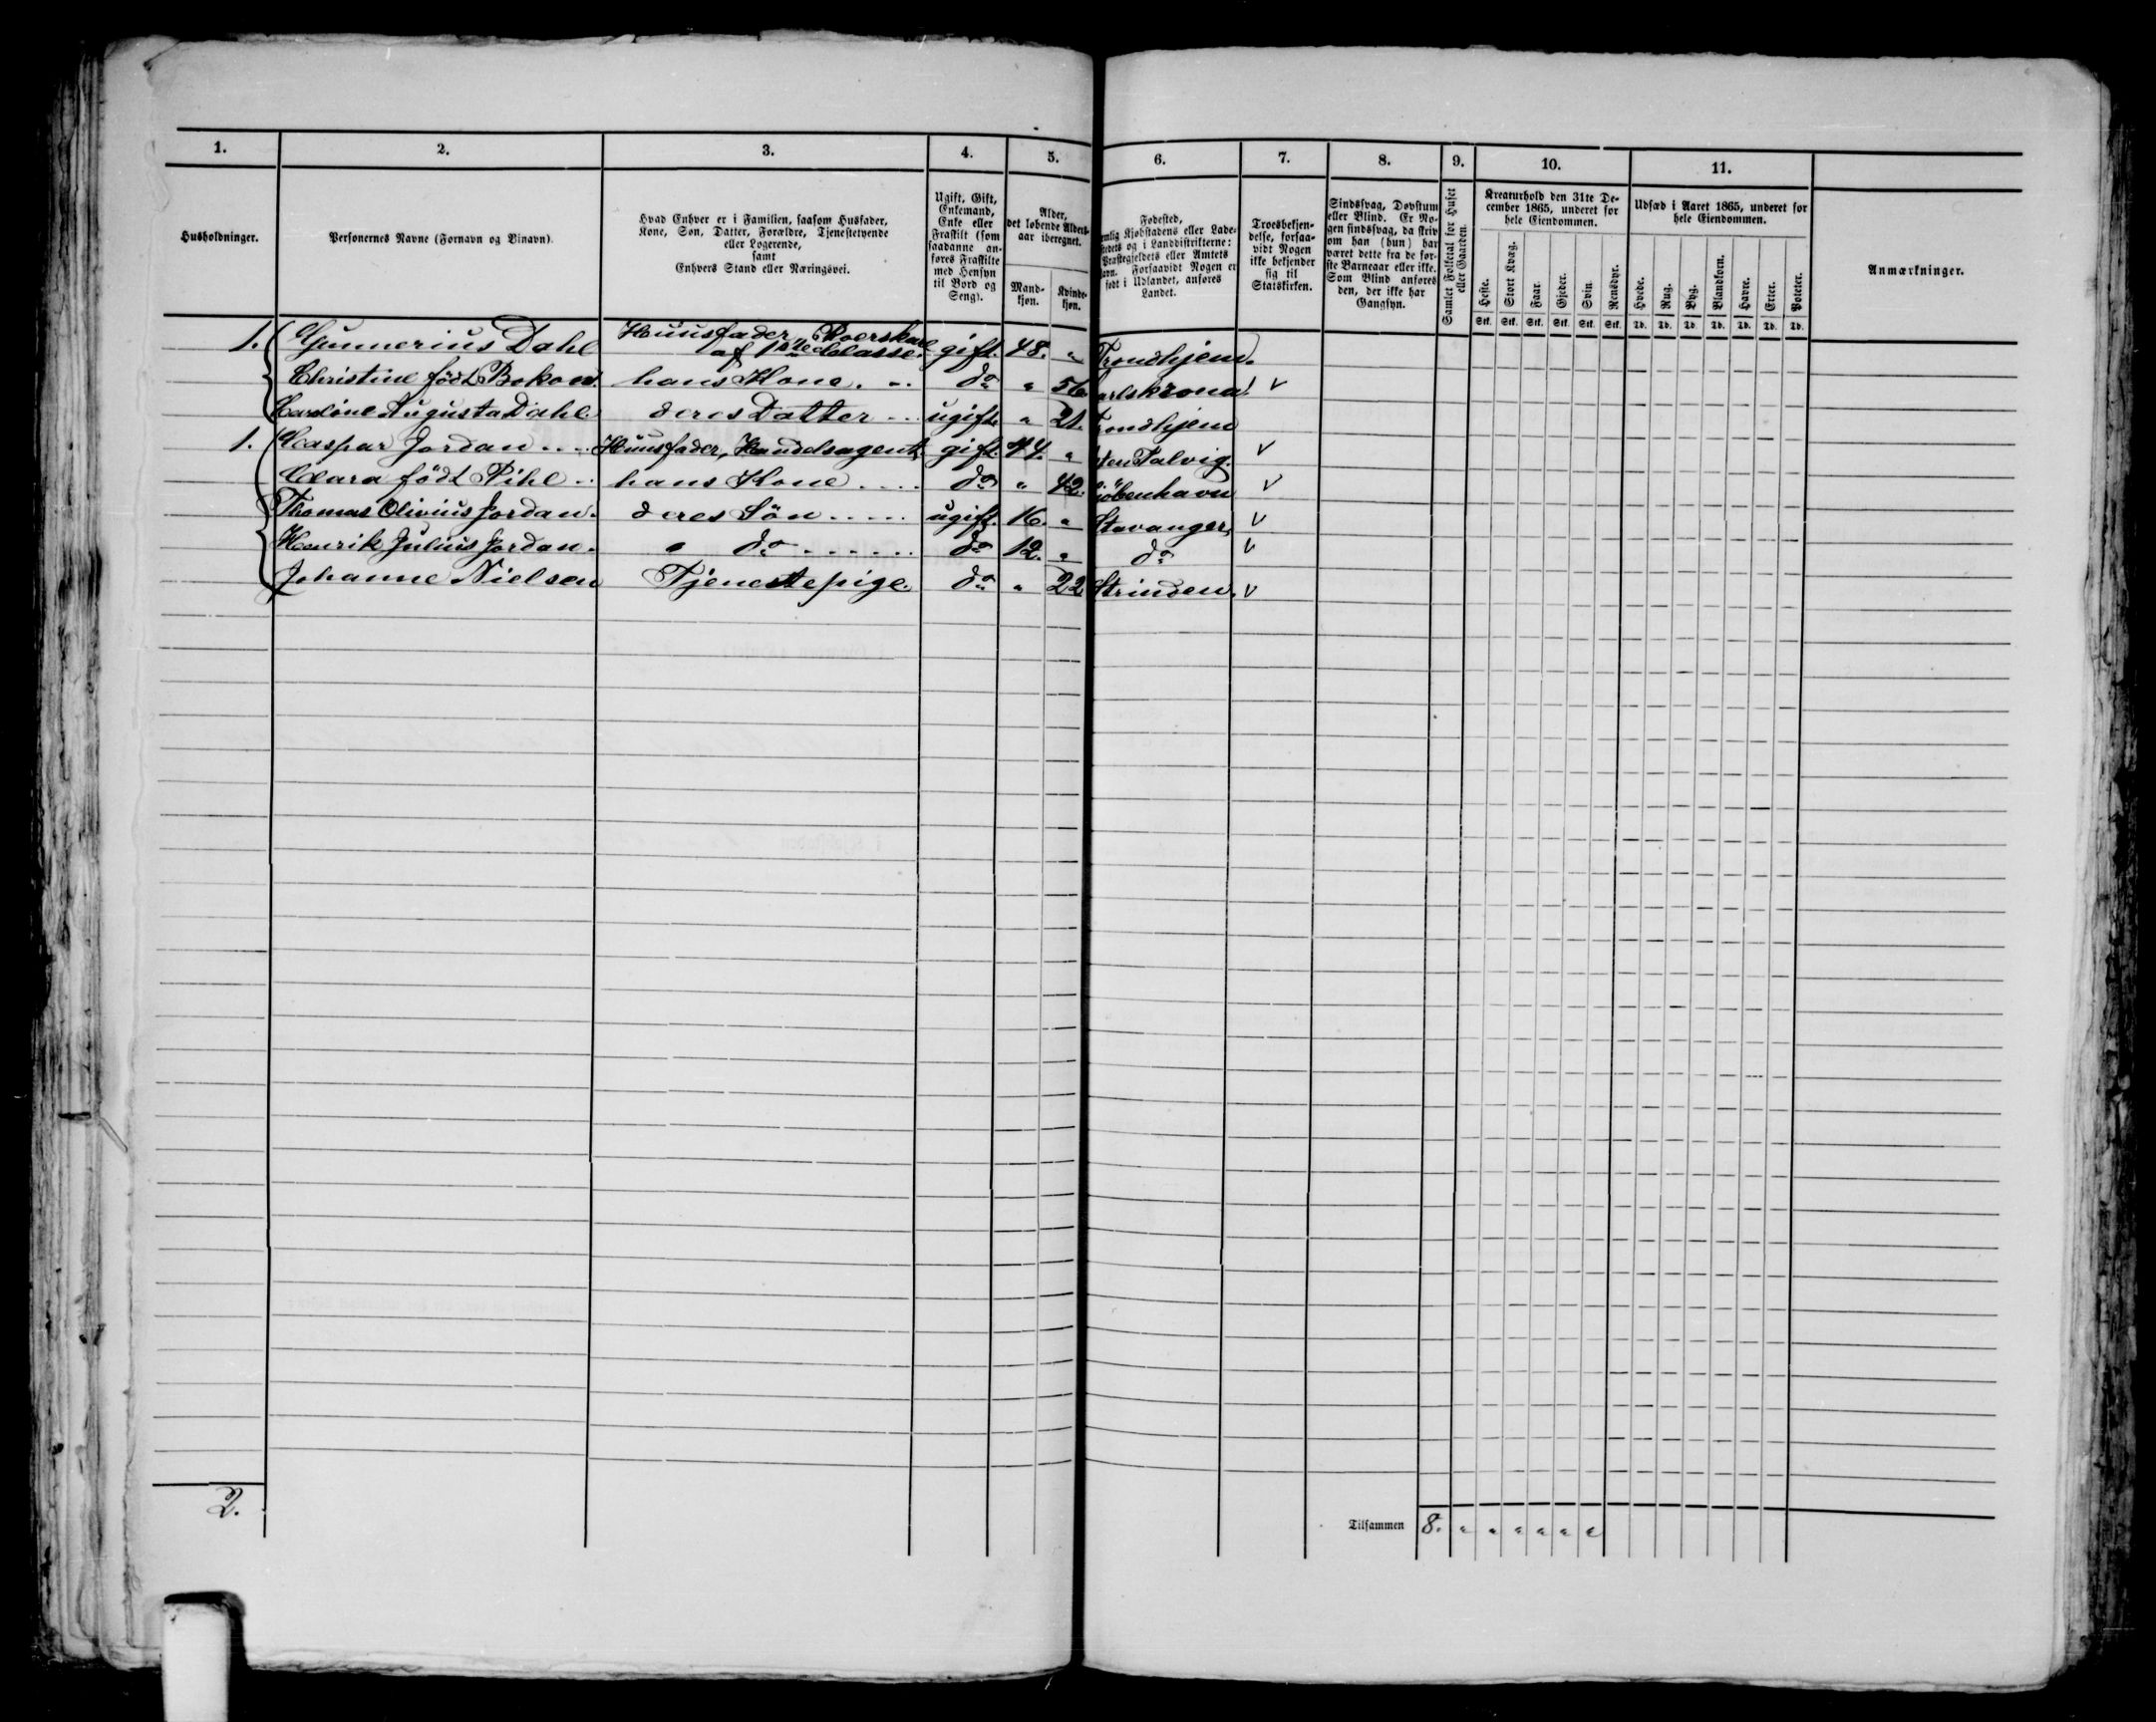 1. 2. 3. 4. 5. 6. 7. 8. 9. 10. 11.
Husholdninger.
Personernes Navne (Fornavn og Binavn).
Hvad Enhver er i Familien, saasom Husfader,
Kone, Søn, Datter, Forældre, Tjenestetyende
eller Logerende,
samt
Enhvers Stand eller Næringsvei.
Ugift, Gift,
Enkemand,
Enke eller
Fraskilt (som
saadanne an-
føres Fraskilte
med Hensyn
til Bord og
Seng).
Alder,
det løbende Alders-
aar iberegnet.
Mand-
kjøn.
Kvinde-
kjøn.
Fødested,
Kjøbstadens eller Lade-
stedets og i Landdistrikterne:
Præstegjeldets eller Amtets
Navn. Forsaavidt Nogen er
født i Udlandet, anføres
Landet.
Troesbekjen-
delse, forsaa-
vidt Nogen
ikke bekjender
sig til
Statskirken.
Sindssvag, Døvstum
eller Blind. Er No-
gen sindssvag, da skriv
om han (hun) har
været dette fra de før-
ste Barneaar eller ikke.
Som Blind anføres
den, der ikke har
Gangsyn.
Samlet Folketal for Huset
eller Gaarden.
Kreaturhold den 31te De-
cember 1865, underet for
hele Eiendommen.
Heste. Stort Kvæg. Faar. Gjeder. Svin. Rensdyr.
Stk. Stk. Stk. Stk. Stk. Stk.
Udsæd i Aaret 1865, underet for
hele Eiendommen.
Hvede. Rug. Byg. Blandkorn. Havre. Erter. Poteter.
Td. Td. Td. Td. Td. Td. Td.
Anmærkninger.
1. Gunnerius Dahl Huusfader, Roerskarl af 1ste Classe. gift. 48. " Trondhjem.
Christine født hans Kone. do " 56. Carlskrona. v
Caroline Augusta Dahl deres Datter ugift. " 21. Trondhjem
1. Caspar Jordan Huusfader, Handelsagent gift. 44. " Talvig. v
Clara født Pihl hans Kone do " 42. Kjöbenhavn v
Thomas Olivius Jordan. deres Sön ugift. 16. " Stavanger, v
Henrik Julius Jordan. " do do 12. " do v
Johanne Nielsen Tjenestepige. do " 22 Strinden. v
2.
Tilsammen 8. " " " " " "